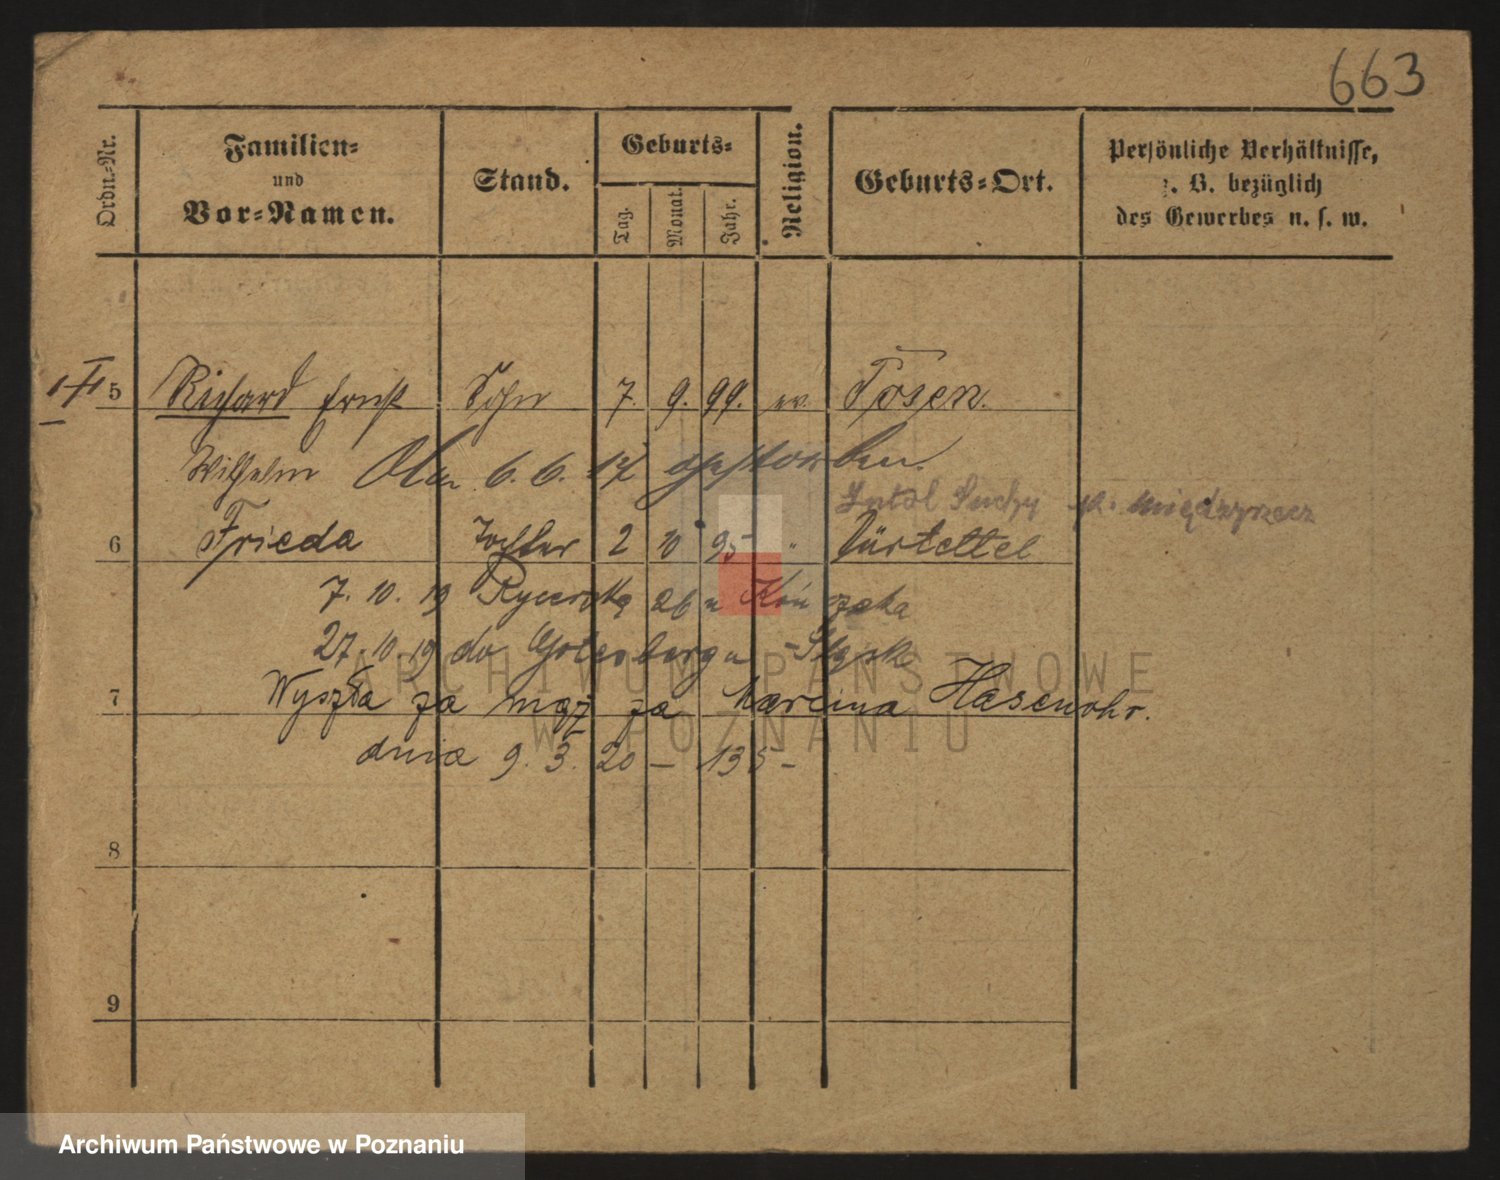 663
Ordn.-Nr.
Familien-
und
Vor-Namen.
Stand.
Geburts-
Tag.
Monat.
Jahr.
Religion.
Geburts-Ort.
Persönliche Verhältnisse,
z. B. bezüglich
des Gewerbes u. s. w.
5 Richard Ernst Sohn 7. 9. 99. ev. Posen.
Wilhelm Am 6. 6. 17 gestorben.
Suchy p. Międzyrzecz
6 Frieda Tochter 2 10 95 " Dürlettel
7. 10. 19 Rycerska 26 u
27. 10. 19 do Śląsk
7 Wyszła za mąż za Marcina Hasenohr.
dnia 9. 3. 20 – 135 –
8
9
ARCHIWUM PAŃSTWOWE
W POZNANIU
Archiwum Państwowe w Poznaniu